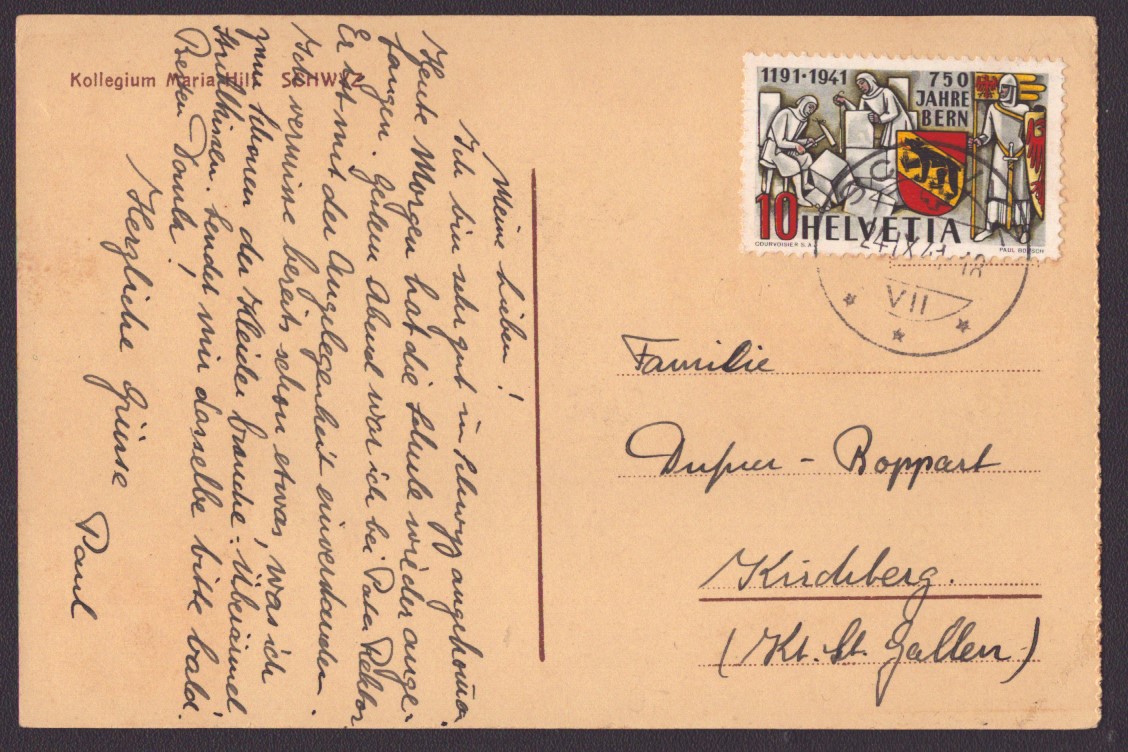 Kollegium Maria Hilf SCHWYZ
Meine Lieben!
Ich bin sehr gut in Schwyz angekom̅en.
Heute Morgen hat die Schule wieder ange-
fangen. Gestern Abend war ich bei Pater Rektor
Er ist mit der Angelegenheit einverstanden.
Ich vermisse bereits schon etwas, was ich
zum Schonen der Kleider brauche: Überärmel
Sendet mir dasselbe bitte bald.
Besten Dank!
Herzliche Grüsse
Paul
1191·1941
750
JAHRE
BERN
10 HELVETIA
COURVOISIER S.A.
PAUL BOESCH
24.IX.41-18
VII
Familie
Dufner - Roppart
Kirchberg.
(Kt. St. Gallen)